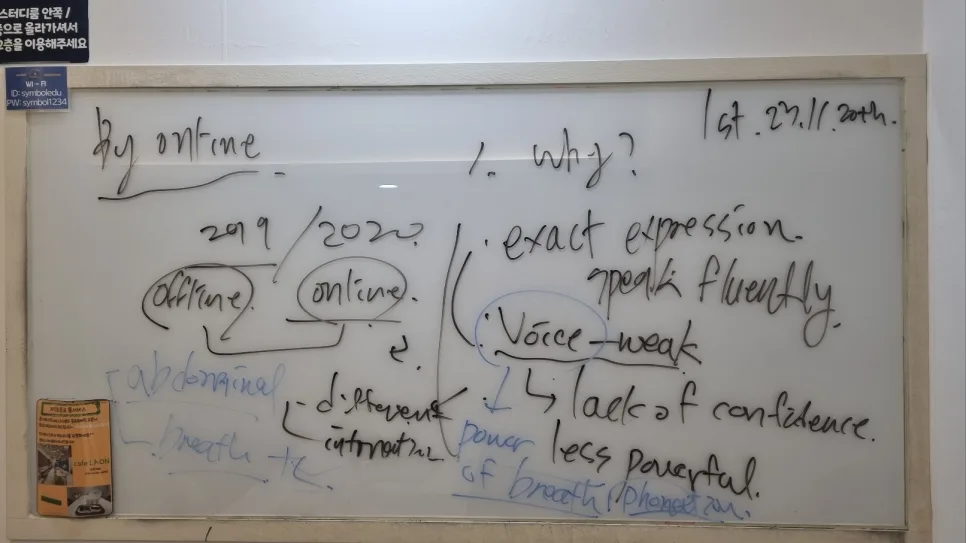 스터디룸 안쪽 /
층으로 올라가셔서
2층을 이용해주세요
WI-FI
ID: symboledu
PW: symbol1234
1st. 23.11.20th.
By online
2019 / 2020.
offline. online.
abdominal
breath
- different
1. Why?
· exact expression.
speak fluently.
· Voice - weak
↳ lack of confidence.
less powerful.
power
of breath / phonation.